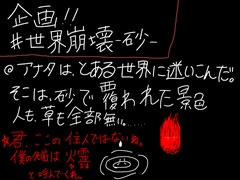 企画!!
#世界崩壊-砂-
@アナタは、とある世界に迷いこんだ。
そこは、砂で覆われた景色
人も、草も全部無い。……
君、ここの住人ではないね。
僕の名は火霊
と呼んでくれ。